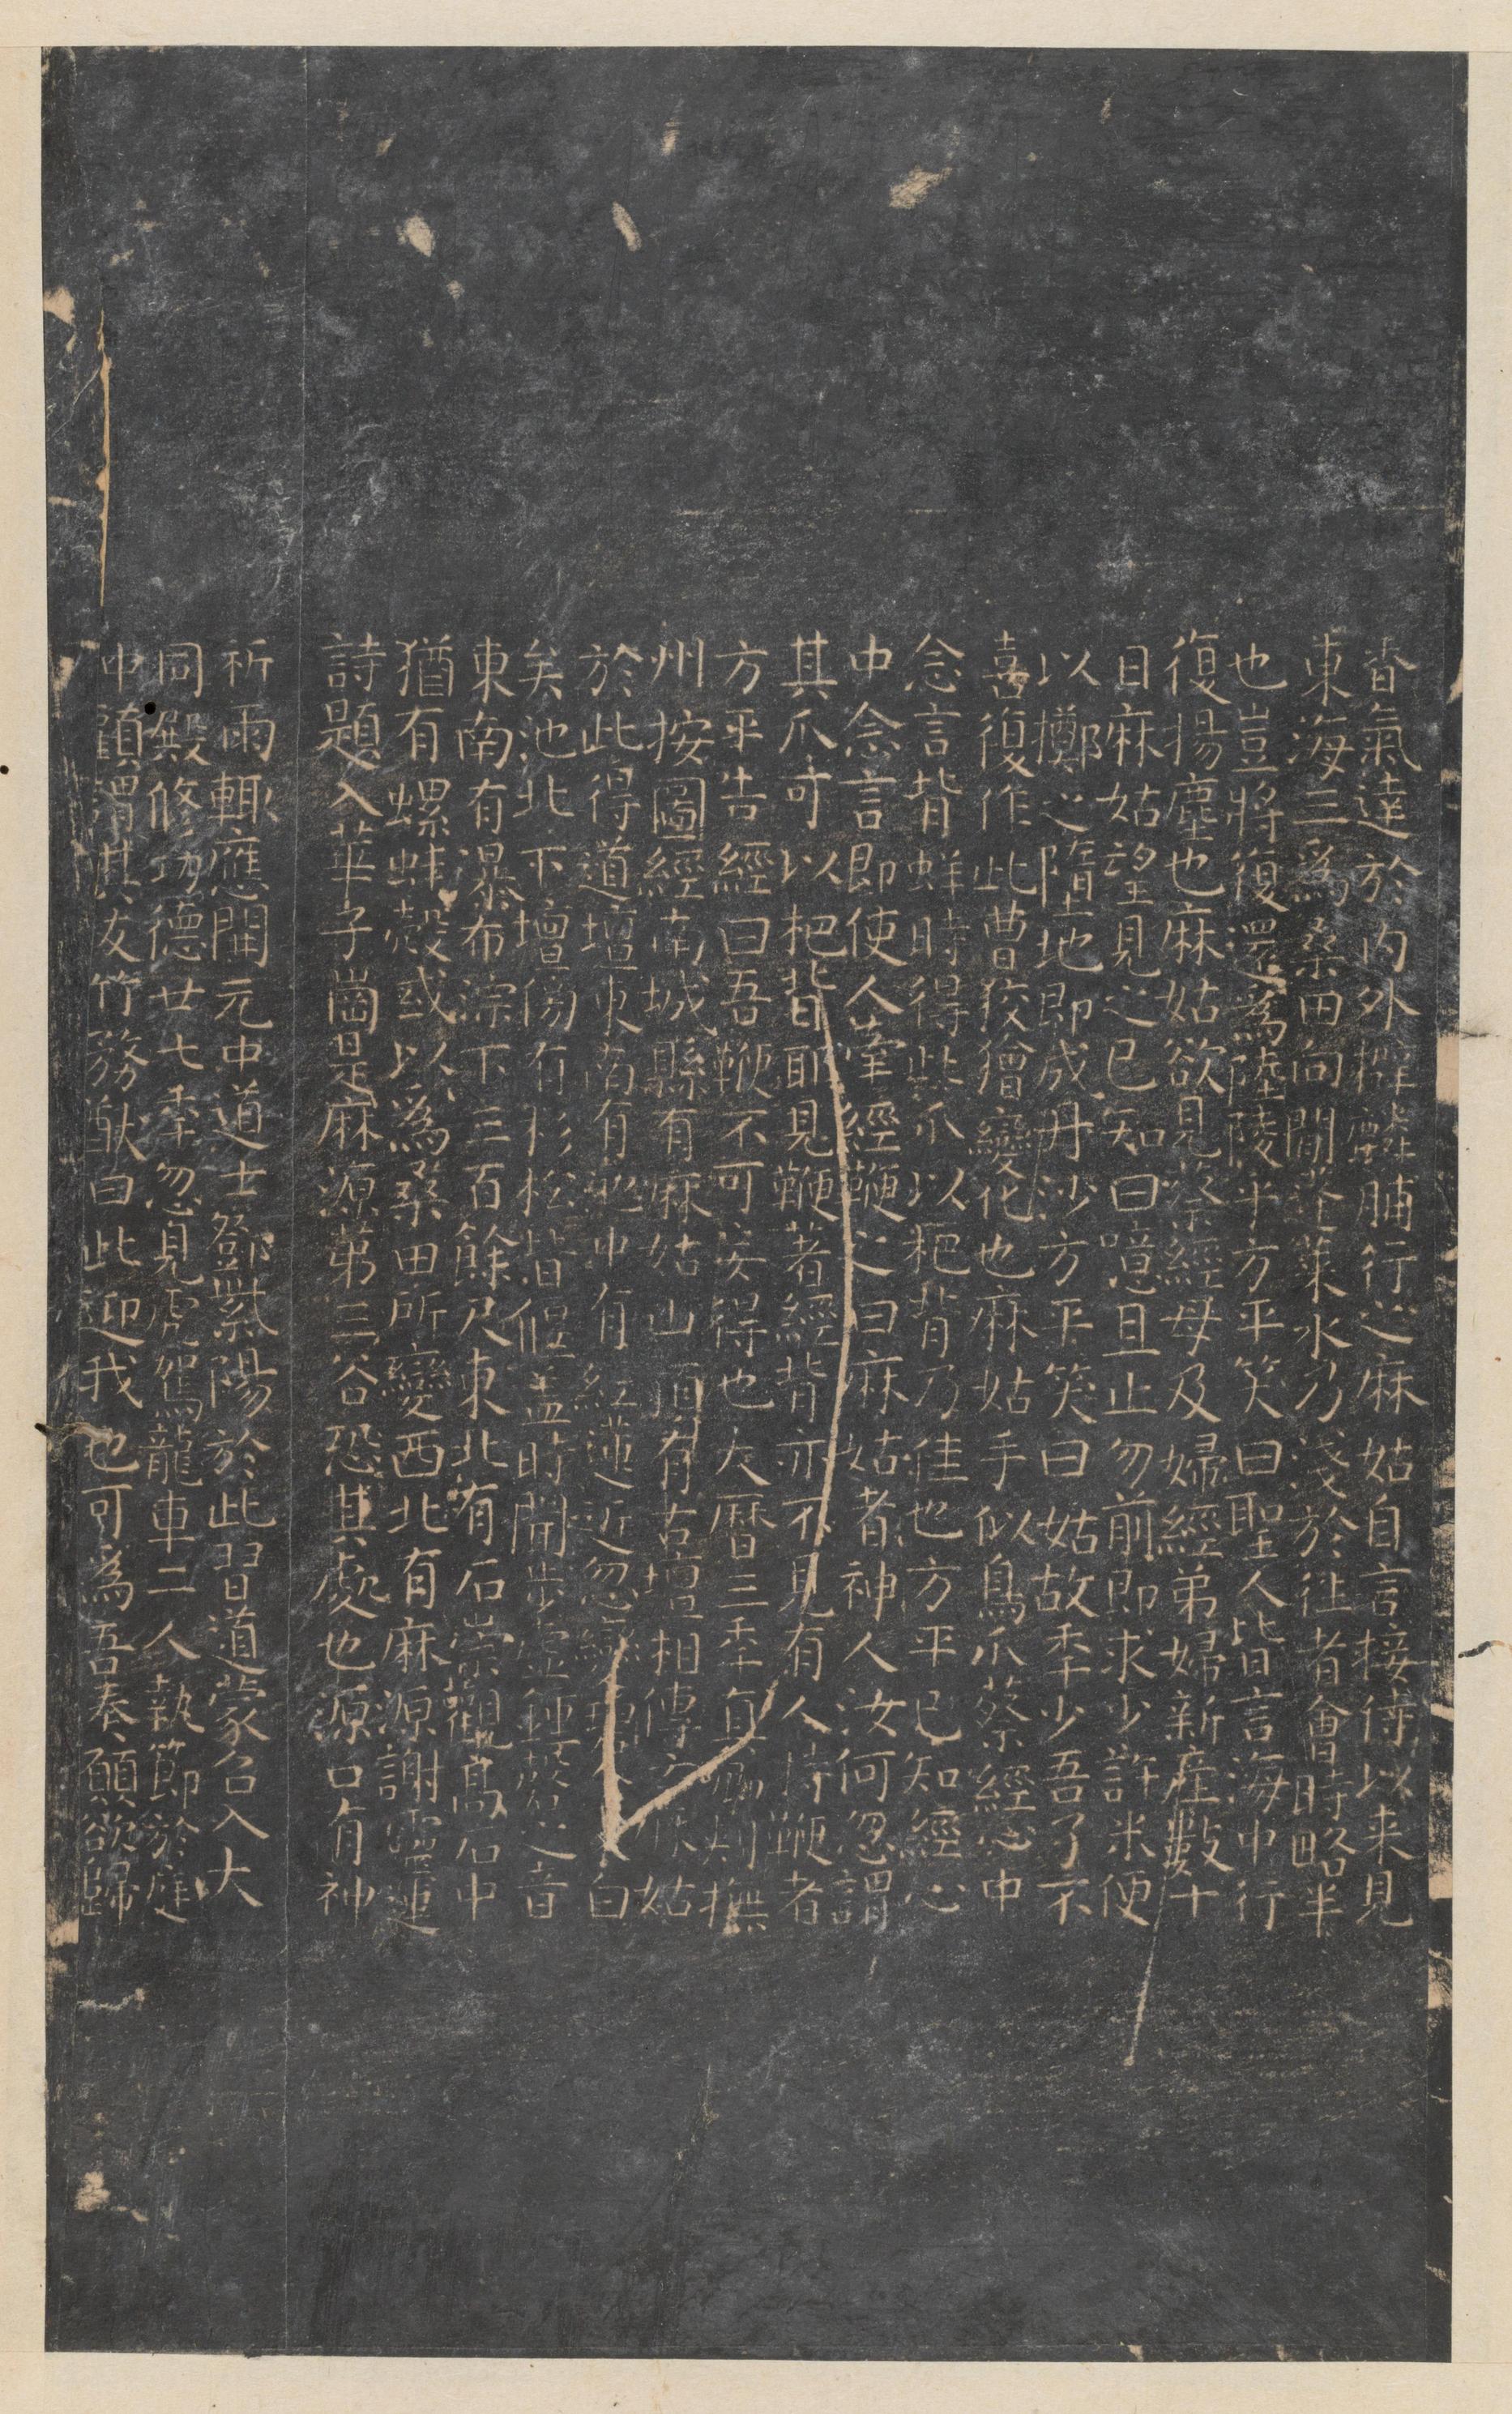 香氣達於內外擗麟脯行之麻姑自言接待以来見
東海三為桑田向間蓬萊水乃淺於往者會時略半
也豈將復還為陸陵乎方平笑曰聖人皆言海中行
復揚塵也麻姑欲見蔡經母及婦經弟婦新產數十
日麻姑望見之已知曰噫且止勿前即求少許米便
以擲之墮地即成丹沙方平笑曰姑故年少吾了不
喜復作此曹狡獪變化也麻姑手似鳥爪蔡經心中
念言背蛘時得此爪以杷背乃佳也方平已知經心
中念言即使人牽經鞭之曰麻姑者神人汝何忽謂
其爪可以杷背耶見鞭著經背亦不見有人持鞭者
方平告經曰吾鞭不可妄得也大曆三年真卿刺撫
州按圖經南城縣有麻姑山頂有古壇相傳云麻姑
於此得道壇東南有池中有紅蓮近忽變碧今白
矣池北下壇傍有杉松皆偃蓋時聞步虛鍾磬之音
東南有瀑布淙下三百餘尺東北有石崇觀高石中
猶有螺蚌殼或以為桑田所變西北有麻源謝靈運
詩題入華子崗是麻源第三谷恐其處也源口有神
祈雨輒應開元中道士鄧紫陽於此習道蒙召入大
同殿修功德廿七年忽見虎駕龍車二人執節於庭
中顧謂其友竹務猷曰此迎我也可為吾奏願欲歸